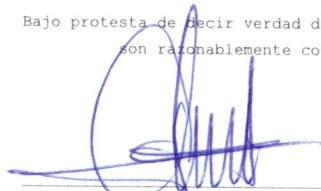 Bajo protesta de decir verdad d
son razonablemente co